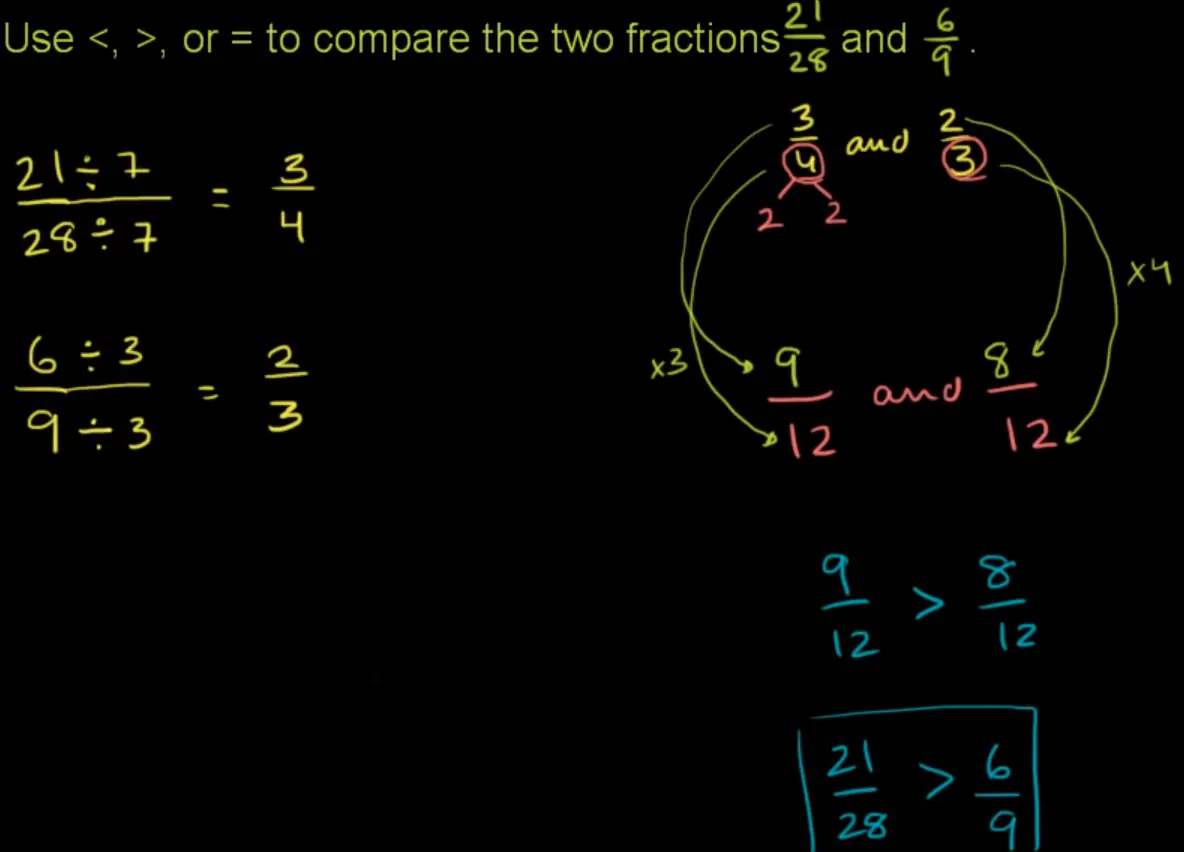 Use <, >, or = to compare the two fractions 21/28 and 6/9 .
21 ÷ 7 / 28 ÷ 7 = 3/4
6 ÷ 3 / 9 ÷ 3 = 2/3
3/4 and 2/3
2 2
x4
x3
9/12 and 8/12
9/12 > 8/12
21/28 > 6/9